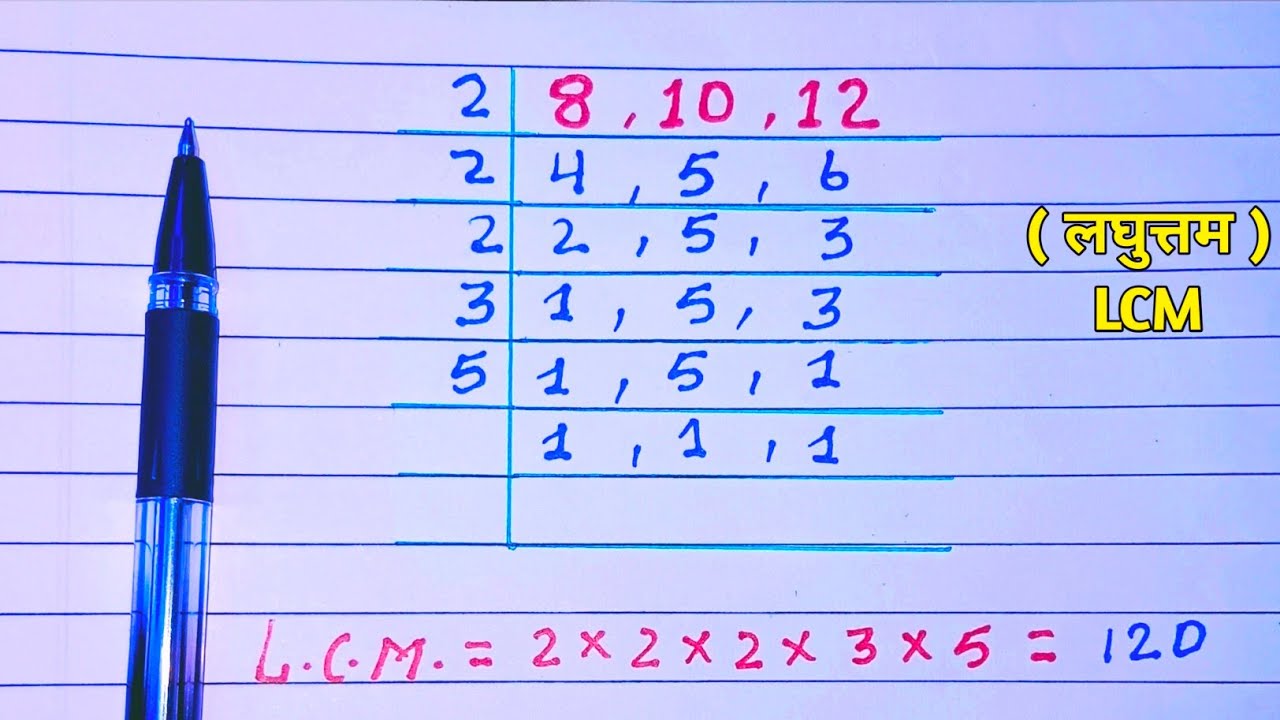 2 8 , 10 , 12
2 4 , 5 , 6
2 2 , 5 , 3
( लघुत्तम )
LCM
3 1 , 5 , 3
5 1 , 5 , 1
1 , 1 , 1
L.C.M. = 2 × 2 × 2 × 3 × 5 = 120